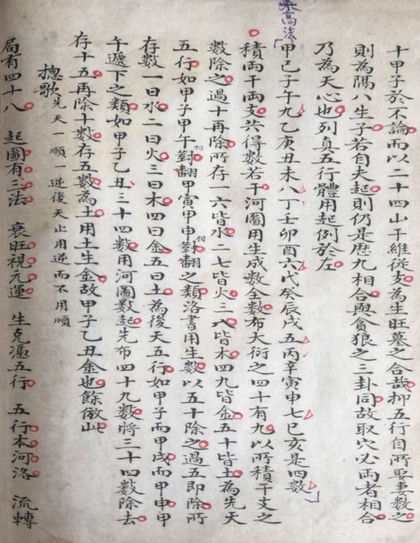 十甲子於不論而以二四山干維從支為生旺墓之合哉抑五行自所要妻數之
則為隔八生子若自夫起則仍是歷九相合與貪狼之三卦同故取穴必両者相合
乃為天心也列真五行體用起例於左
甲己子午九乙庚丑未八丁壬卯酉六戊癸辰戌五丙辛寅申七巳亥是四數
積両干両支共得數若干河圖用生成數全數布大衍之四十有九以所積干支之
數除之過十再除所存一六皆水二七皆火三八皆木四九皆金五十皆土為先天
五行如甲子甲午對翻甲寅甲申對翻之類洛書用生數以五十除之過五即除所
存數一曰水二曰火三曰木四曰金五曰土為後天五行如甲子而甲戌而甲申甲
午遞下之類如甲子乙丑三十四數用河圖數起先布四十九數將三十四數除去
存十五再除十數存五數為土用土生金故甲子乙丑金也餘倣此
揔歌 先天一順一逆後天止用逆而不用順
局有四十八 起圖有三法 衰旺視元運 生克憑五行 五行本河洛 流轉